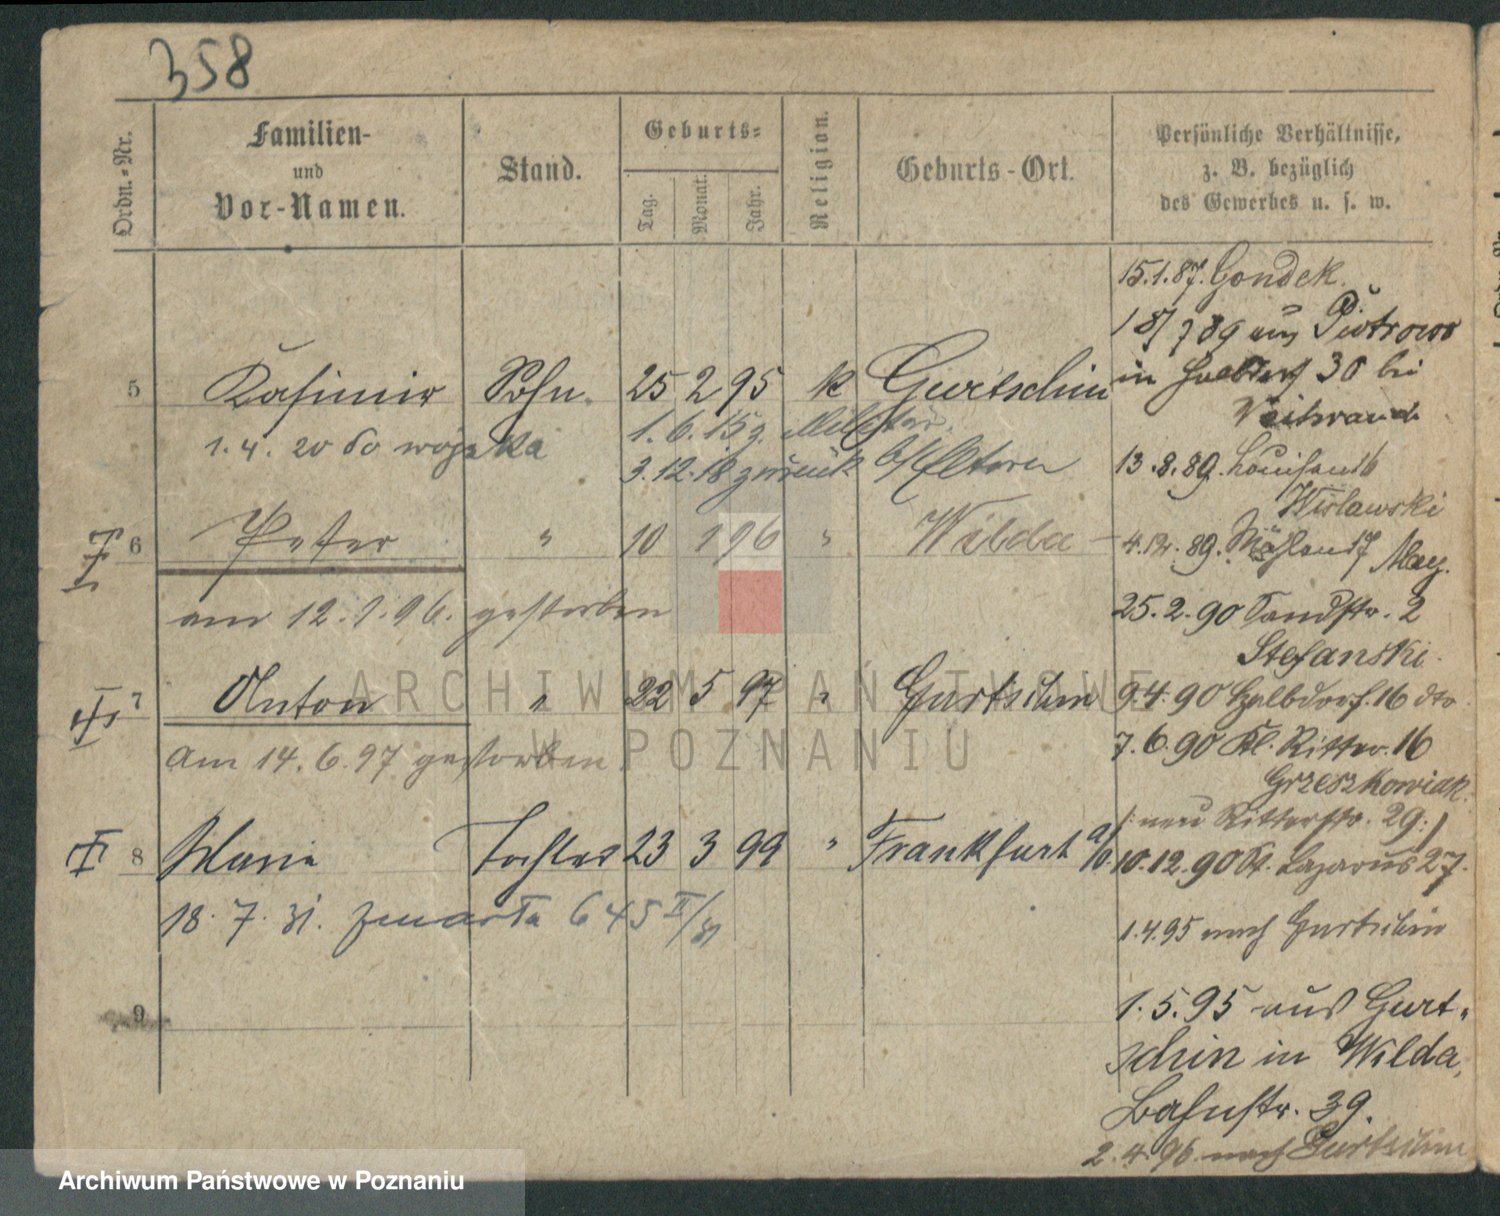 358
Ordn.-Nr.
Familien-
und
Vor-Namen.
Stand.
Geburts-
Tag.
Monat.
Jahr.
Religion.
Geburts-Ort.
Persönliche Verhältnisse,
z. B. bezüglich
des Gewerbes u. s. w.
15.1.87. Gondek.
18/7 89 aus Piotrowo
in Halbdorf 30 bei
5 Kasimir Sohn. 25 2 95 k Gurtschin
1.4.20 do wojska
1.6.15 z. Militär.
3.12.18 zurück b/Eltern
13.8.89. Louisen 16
Wislawski
6 Peter " 10 1 96 " Wilda
am 12.1.96. gestorben
4.12.89. 17 May.
25.2.90 Sandstr. 2
Stefanski.
7 Anton " 22 5 97 " Gurtschin
am 14.6.97 gestorben
9.4.90 Halbdorf. 16 dto
7.6.90 Kl. Ritter. 16
Grzeszkowiak.
/: neu Ritterstr. 29:/
8 Marie Tochter 23 3 99 " Frankfurt a/O.
18.7.31. zmarła 645 II/31
10.12.90 St. Lazarus 27.
1.4.95 nach Gurtschin
9
1.5.95 aus Gurt-
schin in Wilda,
Bahnstr. 39.
2.4.96 nach Gurtschin
ARCHIWUM PAŃSTWOWE
W POZNANIU
Archiwum Państwowe w Poznaniu